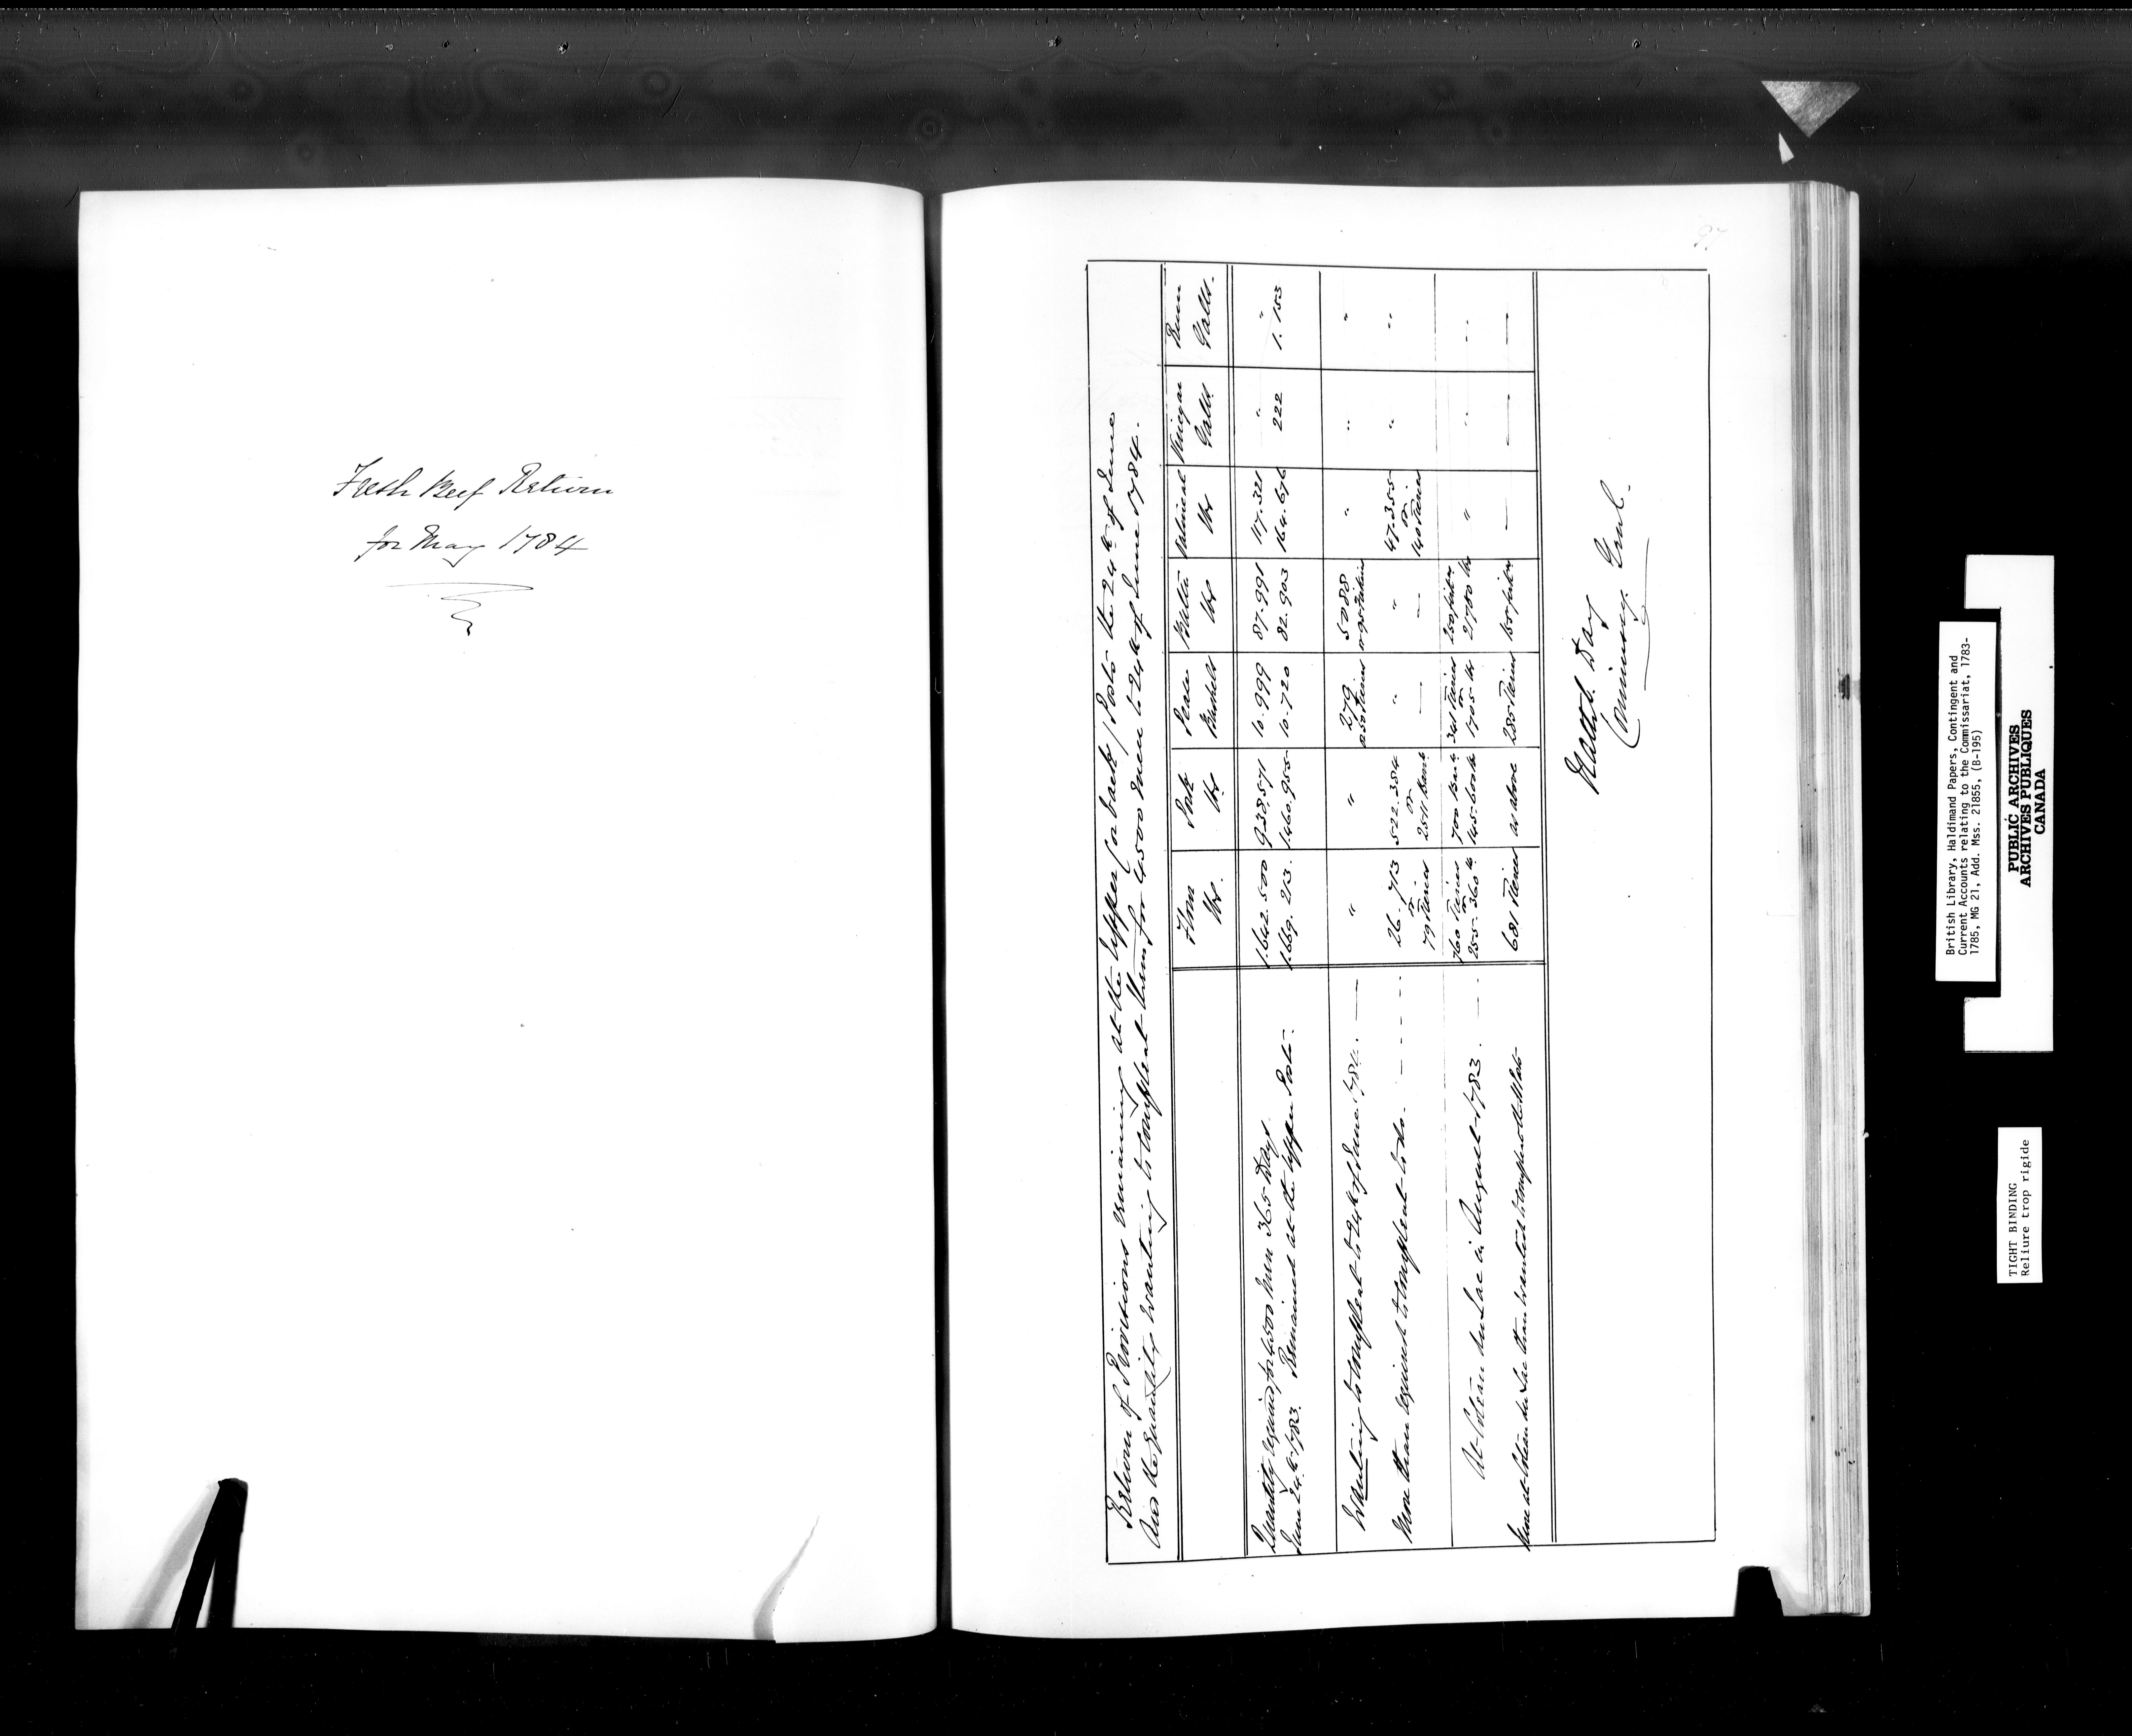 Fresh Beef Return
for May 1784
97
Return of Provisions remaining at the Upper (or back) Posts the 24th of June
And the Quantity wanting to Compleat them for 4500 Men to 24th of June 1784.
Flour lbs. Pork lbs. Pease Bushells Butter lbs Oatmeal lbs Vinegar Galls. Rum Galls.
Quantity required for 4500 Men 365 Days. 1.642.500 938.571 10.999 87.991 117.321 " "
June 24th 1783. Remained at the Upper Posts. 1.669.213. 1.460.955 10.720 82.903 164.676 222 1.153
Wanting to compleat to 24th of June 1784. — " " 279 or 50 Tierces 5088 or 95 Firkins " " "
More than required to Compleat to do. - - - - 26.713 or 79 Tierces 522.384 or 2511 Barrls " — " — 47.355 or 140 Tierces " "
At Coteau du Lac in August 1783. - — - 760 Tierces or 255.360 lb 700 Barls 145.600 lb 341 Tierces or 1705 lbs 250 firkins 21750 lbs " " "
More at Coteau du Lac than wanted to Compleat the Posts 681 Tierces as above 285 Tierces 155 firkins — — —
Nathl. Day
Commissy. Genl.
British Library, Haldimand Papers, Contingent and
Current Accounts relating to the Commissariat, 1783-
1785, MG 21, Add. Mss. 21855, (B-195)
PUBLIC ARCHIVES
ARCHIVES PUBLIQUES
CANADA
TIGHT BINDING
Reliure trop rigide